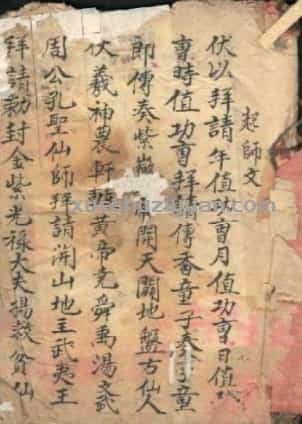 起師文
伏以拜請年值功曹月值功曹日值
曹時值功曹拜請傳香童子奏事童
郎傳奏紫 開天闢地盤古仙人
伏羲神農軒轅黃帝堯舜禹湯文武
周公孔聖仙師拜請開山地主武夷王
拜請勅封金紫光祿大夫楊救貧仙